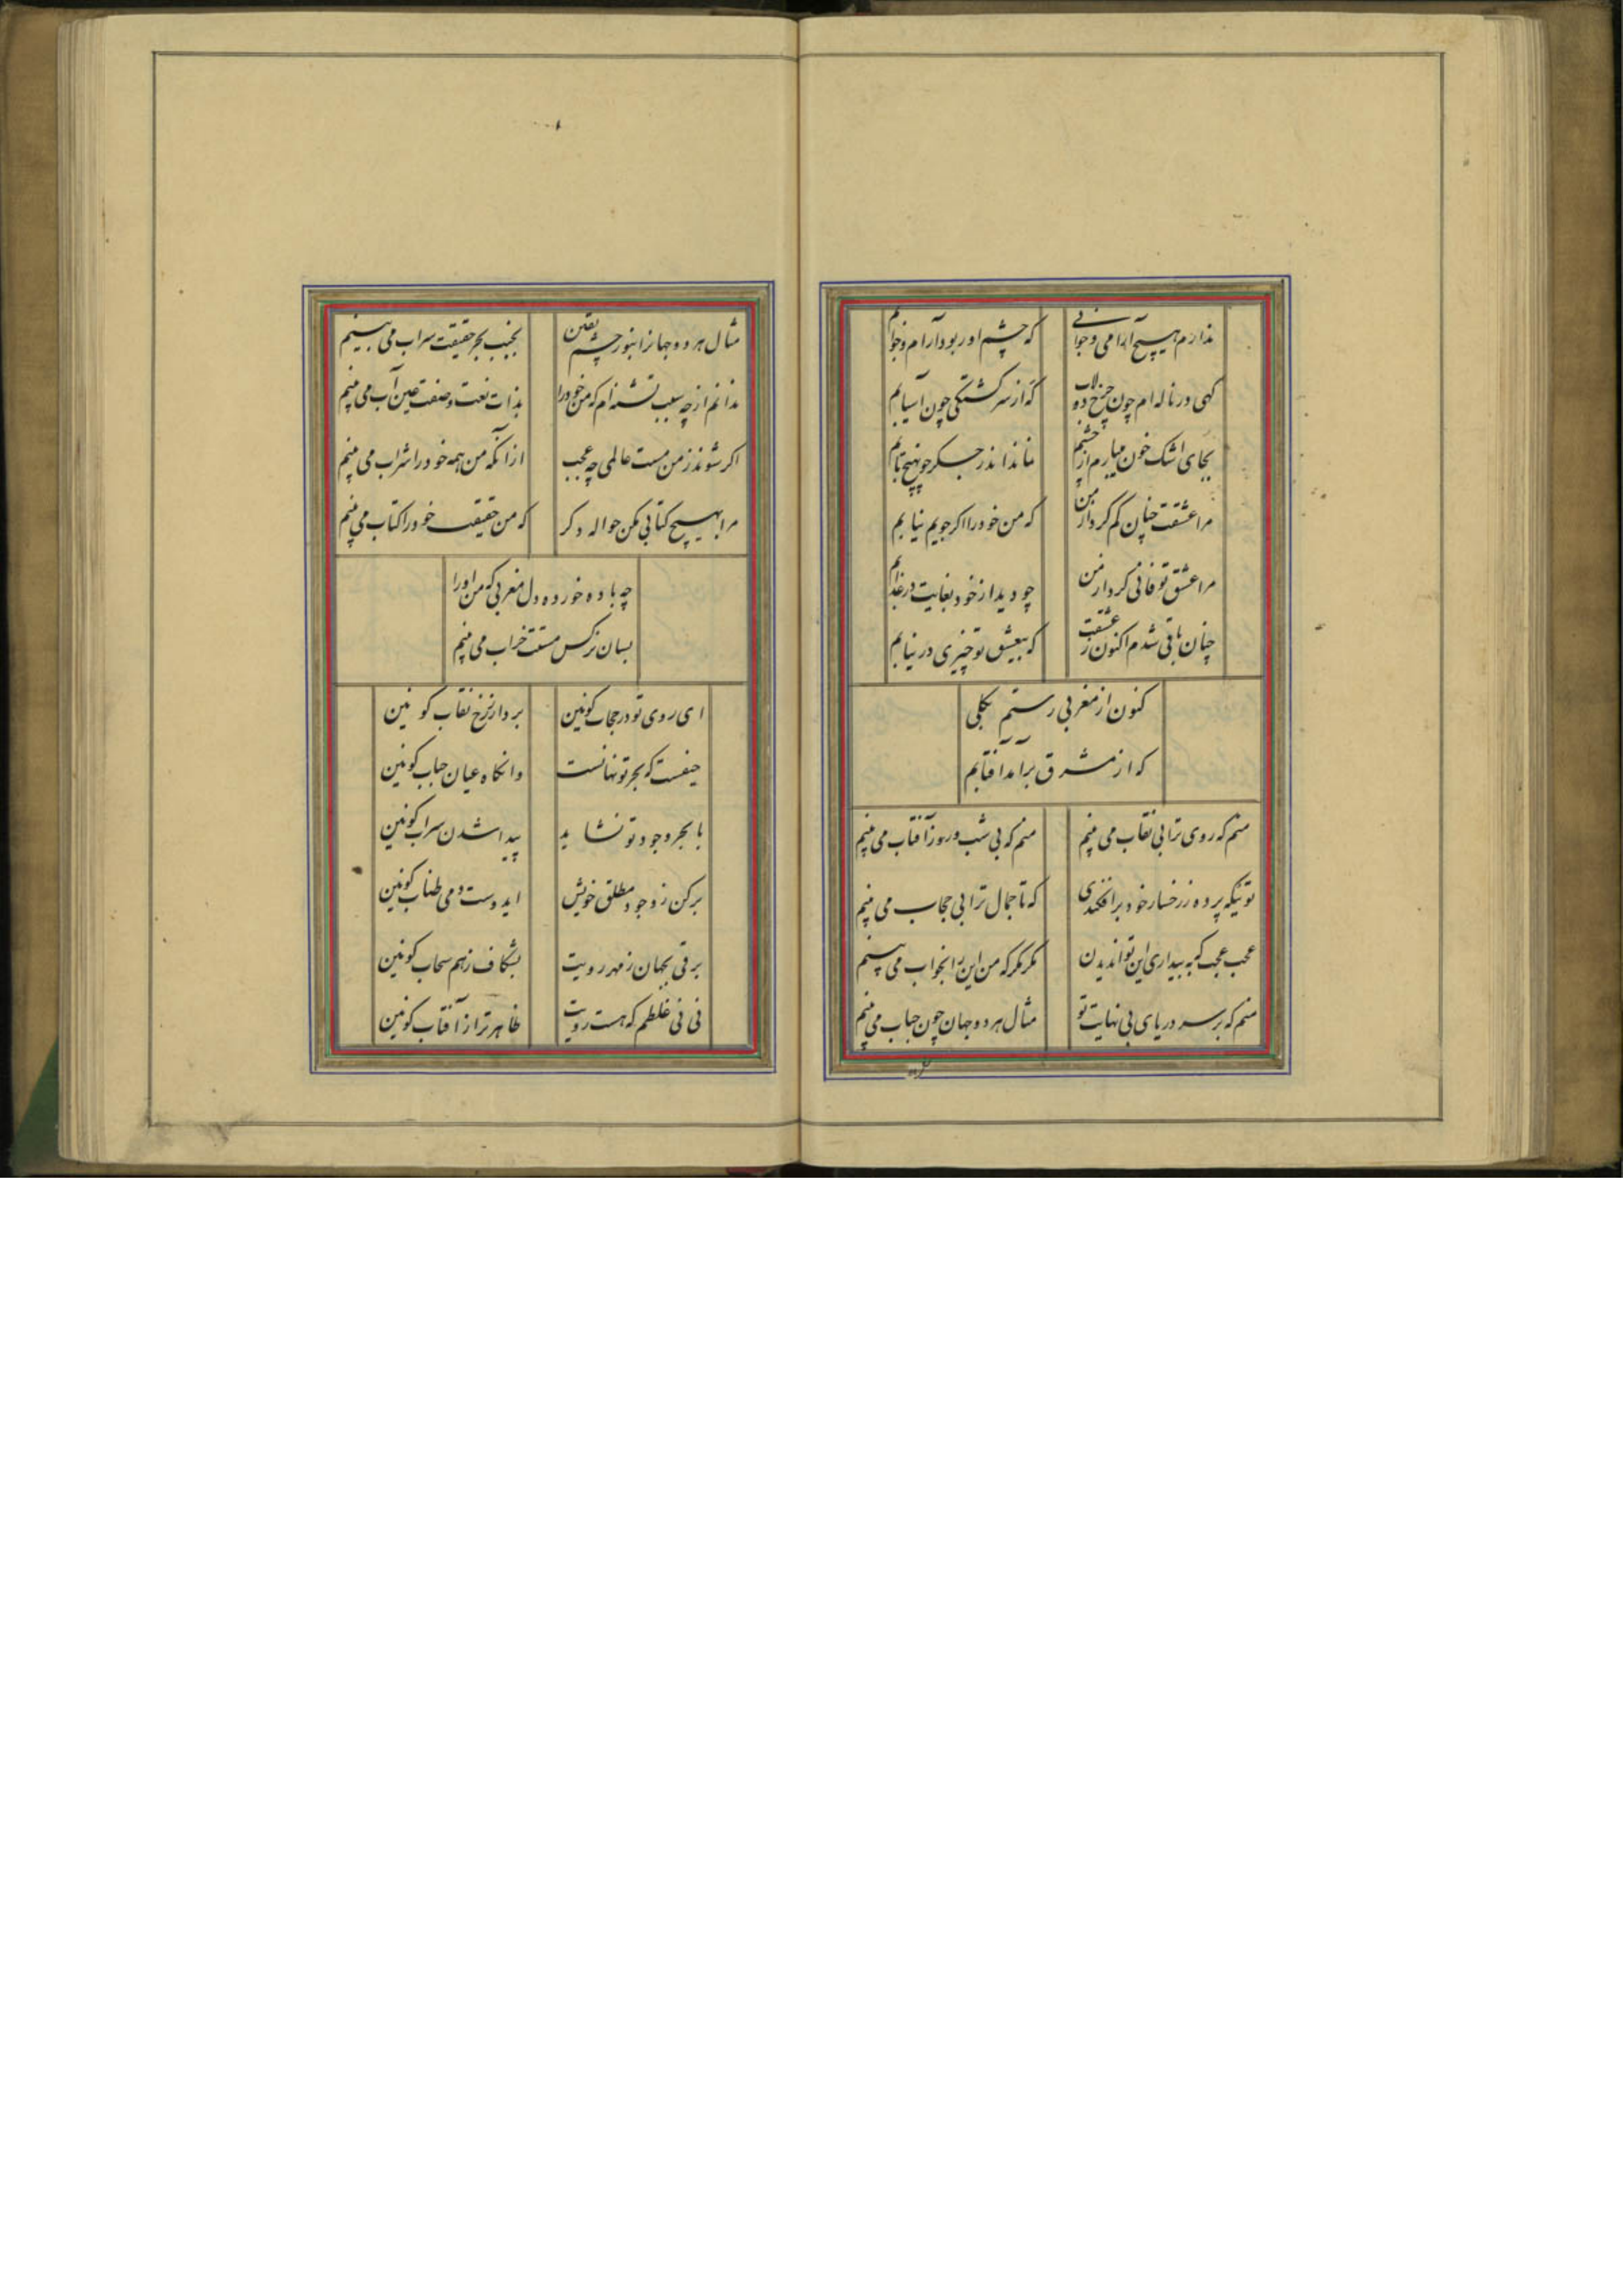 ندارم هیچ آرامی و خوابی
که چشم او ربود آرام و خوابم
کهی در ناله‌ام چون چرخ دولاب
که از سرکشتکی چون آسیابم
بجای اشک خون میبارم از چشم
نماند اندر جسکر چون هیچ آبم
مرا عشقت چنان کم کرد از من
که من خود را اکر جویم نیابم
مرا عشق تو فانی کرد از من
چو دید از خود بغایت در عذابم
چنان باقی شدم اکنون ز عشقت
که بیعشق تو چیزی در نیابم
کنون از مغربی رستم بکلی
که از مشرق برآمد آفتابم
منم که روی ترا بی نقاب می بینم
منم که بی شب و روز آفتاب می بینم
توئیکه پرده ز رخسار خود برافکندی
که تا جمال ترا بی حجاب می بینم
عجب عجب که به بیداری این توان دیدن
مکر مکر که من این را بخواب می بینم
منم که بر سر دریای بی نهایت تو
مثال هر دو جهان چون حباب می بینم
مثال هر دو جهانرا بنور چشم یقین
بجنب بحر حقیقت سراب می بینم
ندانم از چه سبب تشنه‌ام که من خود را
بذات نعت و صفت عین آب می بینم
اکر شوند ز من مست عالمی چه عجب
از آنکه من همه خود را شراب می بینم
مرا بهیچ کتابی مکن حواله دکر
که من حقیقت خود را کتاب می بینم
چه باده خورده دل مغربی که من او را
بسان نرکس مستت خراب می بینم
ای روی تو در حجاب کونین
بردار ز رخ نقاب کونین
حیفست که بحر تو نهانست
وانکاه عیان حباب کونین
با بحر وجود تو نشاید
پیدا شدن سراب کونین
برکن ز وجود مطلق خویش
ایدوست دمی طناب کونین
برقی بجهان ز مهر رویت
بشکاف ز هم سحاب کونین
نی نی غلطم که هست رویت
ظاهرتر از آفتاب کونین